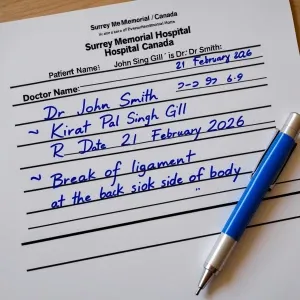 Surrey Me Memorial / Canada
Surrey Memorial Hospital
Hospital Canada
Patient Name: John Sing Gill 's Dr: Dr Smith:
21 February 2026
Doctor Name:
Dr John Smith
~ Kirat Pal Singh Gill
R Date 21 February 2026
~ Break of ligament
at the back siok side of body